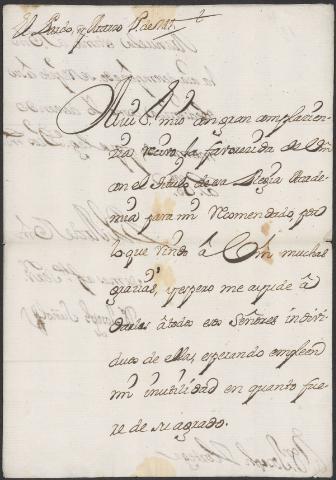 El Pardo, y Marzo 1º de
Muy S.r mio con gran complacen
cia recivo la favorecida de Vm
con el Titulo de esa Regia Acade
mia para mi recomendado, por
lo que rindo â Vm muchas
gracias, y espero me ayude â
darlas â todos esos Señores indivi
duos de ella, esperando empleen
mi inutilidad en quanto fue
re de su agrado.